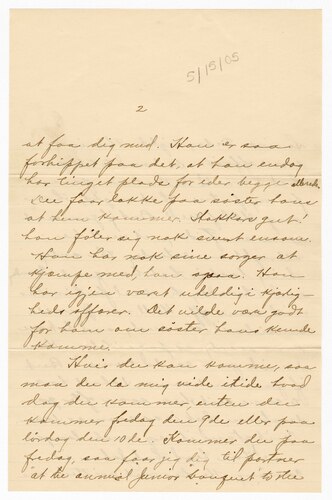 5/15/05
2
at faa dig med. Han er saa
forhippet paa det, at han endog
har tinget plads for eder begge
Du faar lokke paa søster hans
at hun kommer. Stakkars gut!
han føler sig nok svært ensom.
Han har nok sine sorger at
kjæmpe med, han ogsaa. Han
har igjen været uheldig i kjærlig-
heds affærer. Det vilde være godt
for ham om søster hans kunde
komme.
Hvis du kan komme, saa
maa du la mig vide itide hvad
dag du kommer, enten du
kommer fredag den 9de eller paa
lørdag den 10de. Kommer du paa
fredag, saa faar jeg dig til partner
at the annual Junior Banquet to the